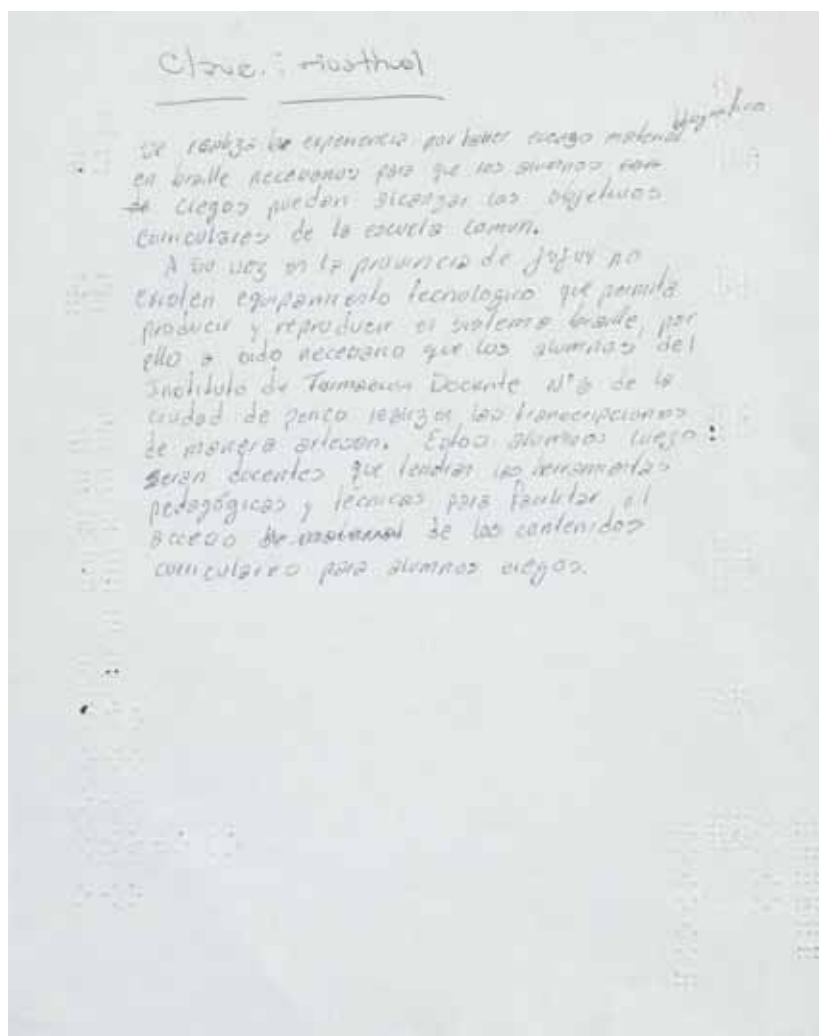 Clave : riosthal
Se realiza la experiencia por haber escaso material bibliográfico
en braille necesarios para que los alumnos
ciegos puedan alcanzar los objetivos
curriculares de la escuela común.
A su vez en la provincia de Jujuy no
existen equipamiento tecnologico que permita
producir y reproducir el sistema braille, por
ello a sido necesario que los alumnos del
Instituto de Formacion Docente N° de la
ciudad de realizar las transcripciones
de manera artesan. Estos alumnos luego
serán docentes que tendrán las herramientas
pedagógicas y técnicas para facilitar el
acceso de los contenidos
curriculares para alumnos ciegos.